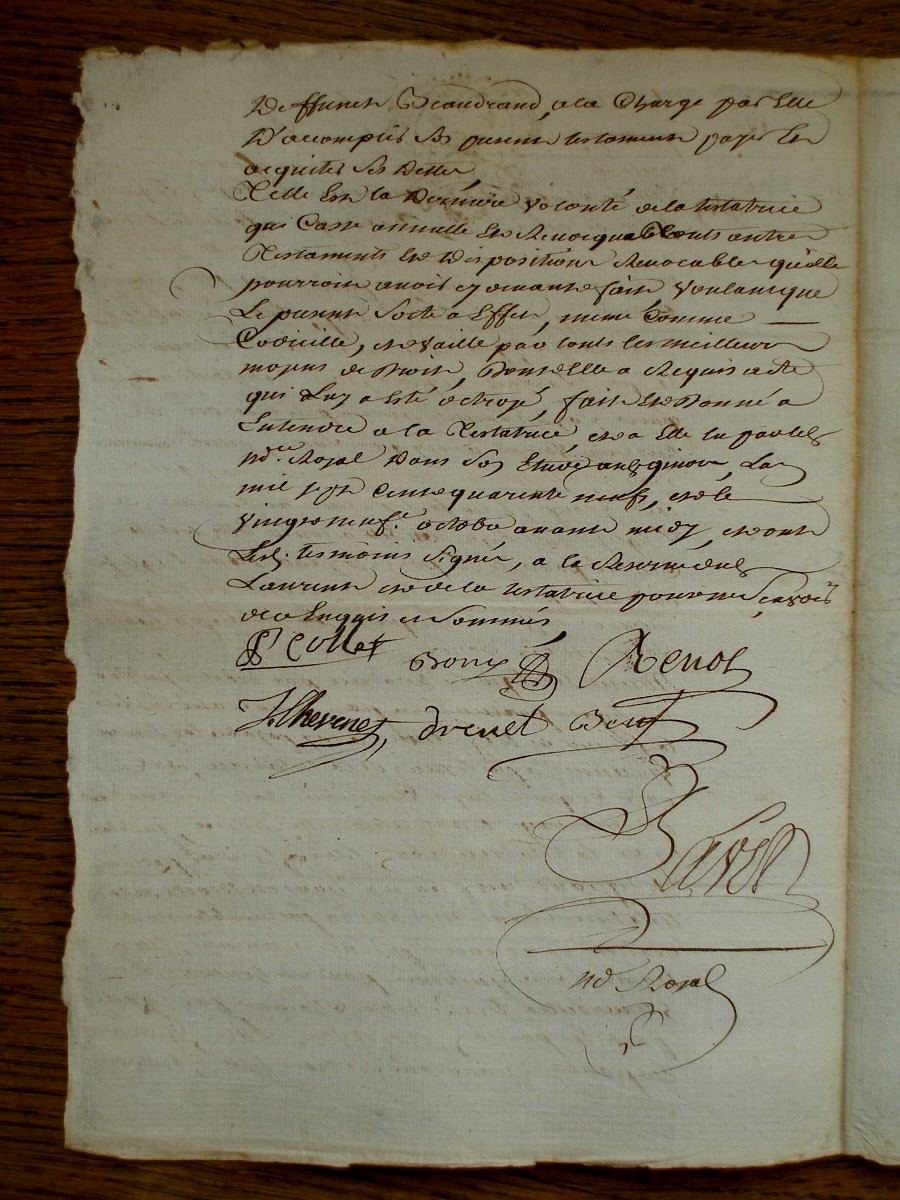 Deffunct Beaudrand, a la Charge par Elle
D'accomplir Son present testament payer Et
acquiter Ses Dettes,
Telle Est la Derniere volonté de la testatrice
qui Casse annulle et Revocque touts autres
Testaments et Dispositions Revocables qu'elle
pourroit avoir cy devant fait, voulant que
Le present Sorte a Effet, meme Comme
Codicille, et vaille par touts les meilleurs
moyens de Droit, Dont Elle a Requis acte
qui Luy a Esté octroyé, fait et Donné a
Entendre a la Testatrice, et a Elle lu par led.
nore. Royal Dans Son Etude L'an
mil sept Cent quarante neuf, et le
vingt neuf. octobre avant midy, et ont
Lesd. tesmoins Signé, a la Reserve dud.
Laurent et de la testatrice pour ne Sçavoir
de ce Enquis et Sommés,
P Collet Bony Renol
J. Chevenet, drevet
nore Royal